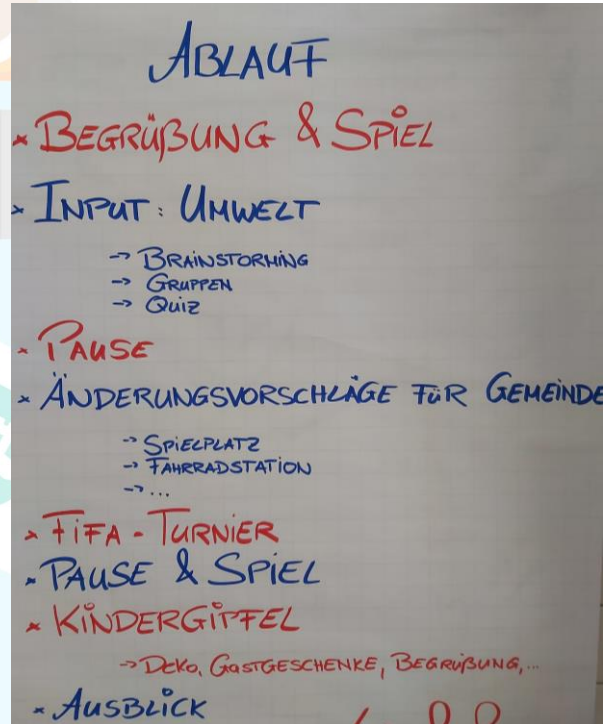 ABLAUF
* BEGRÜßUNG & SPIEL
* INPUT: UMWELT
-> BRAINSTORMING
-> GRUPPEN
-> QUIZ
* PAUSE
* ÄNDERUNGSVORSCHLÄGE FÜR GEMEINDE
-> SPIELPLATZ
-> FAHRRADSTATION
-> ...
* FIFA - TURNIER
* PAUSE & SPIEL
* KINDERGIPFEL
-> DEKO, GASTGESCHENKE, BEGRÜßUNG, ...
* AUSBLICK